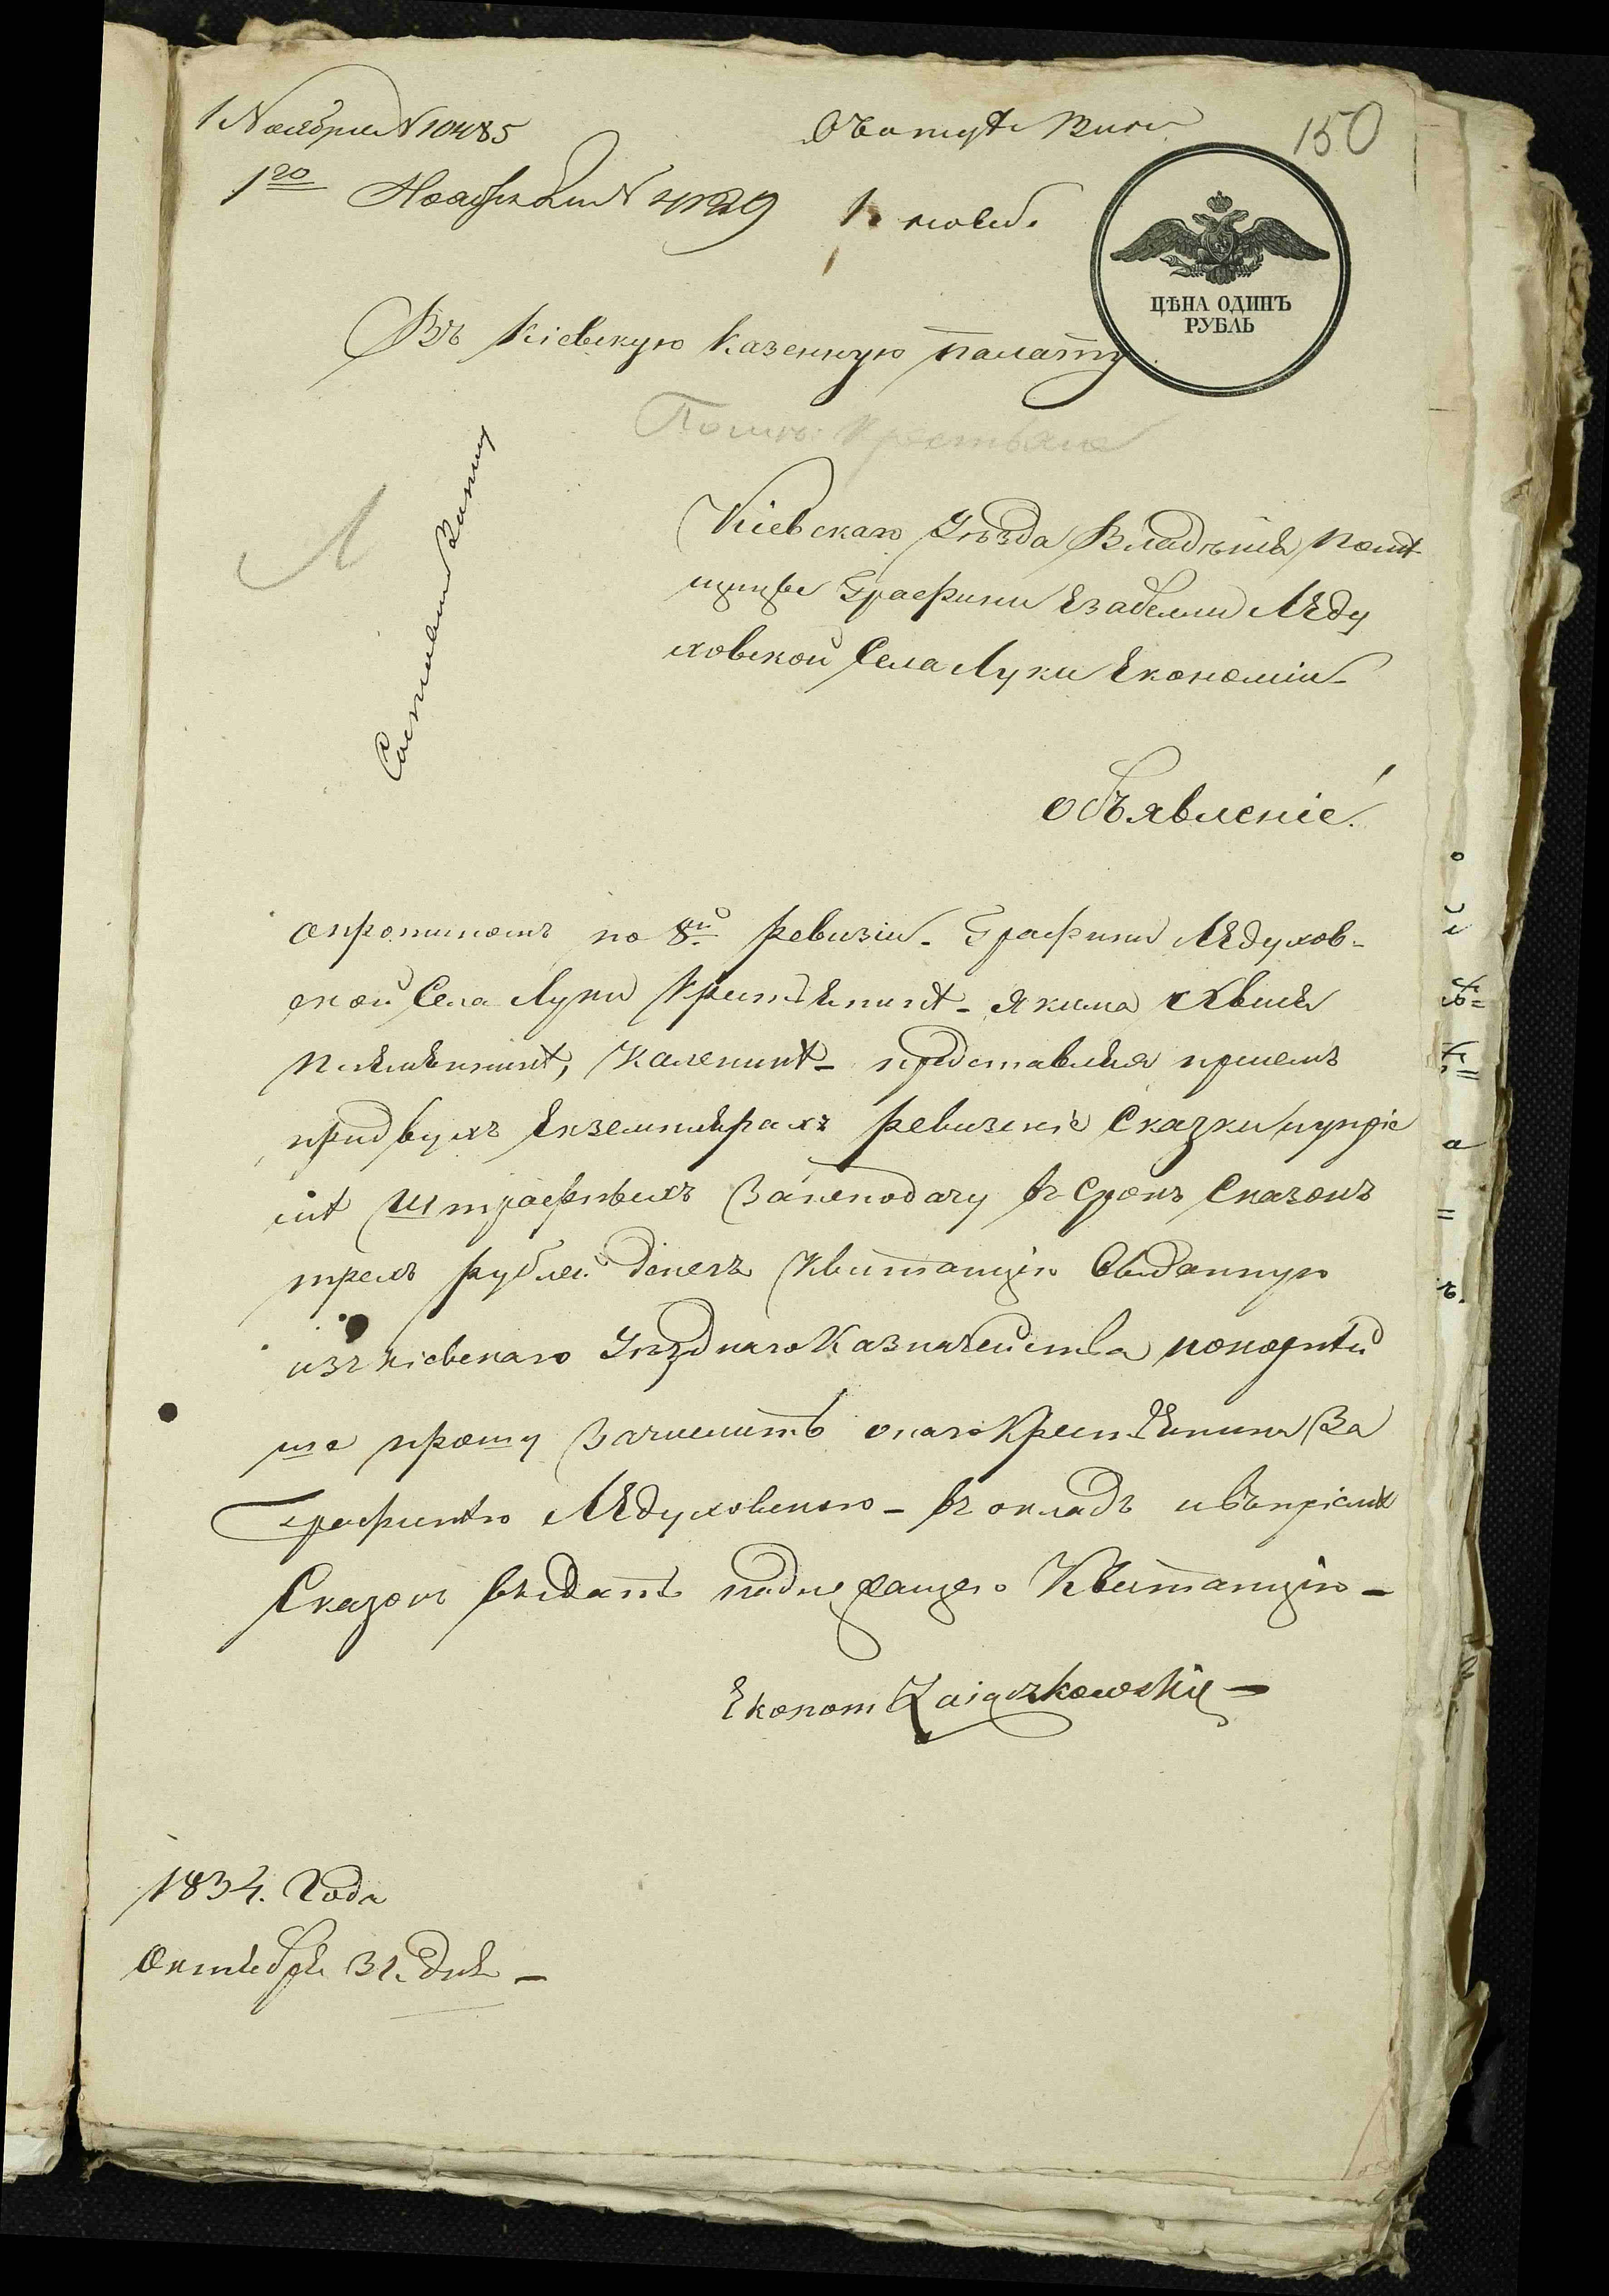 1 Ноября N 10485
150
1го Ноября N 4129
ЦѢНА ОДИНЪ
РУБЛЬ
Въ Кіевскую Казенную палату
Помѣщ: Крестьяне
Кіевскаго Уѣзда Владѣнія Помѣ
щицы Графини Езабелли Лѣду
ховской Села Луки Економіи
объявленіе!
опропи­номъ по 8й ревизіи Графини Лѣдухов-
ской Села Луки Якима
представляя присемъ
придвухъ Екземплярахъ ревизскіе Сказки
Штрафныхъ Занеподачу въ Срокъ Сказокъ
трехъ рублей денегъ Квитанцію Выданную
изъ Кіевскаго Уѣзднаго Казначейства покорнѣй
ше прошу Зачислить онаго За
Графинѣю Лѣдуховскою - въ окладъ ивъпріемѣ
Сказокъ выдать надлежащую Квитанцію -
Економ Zaiączkowski -
1834. Года
Октября 31. дня -